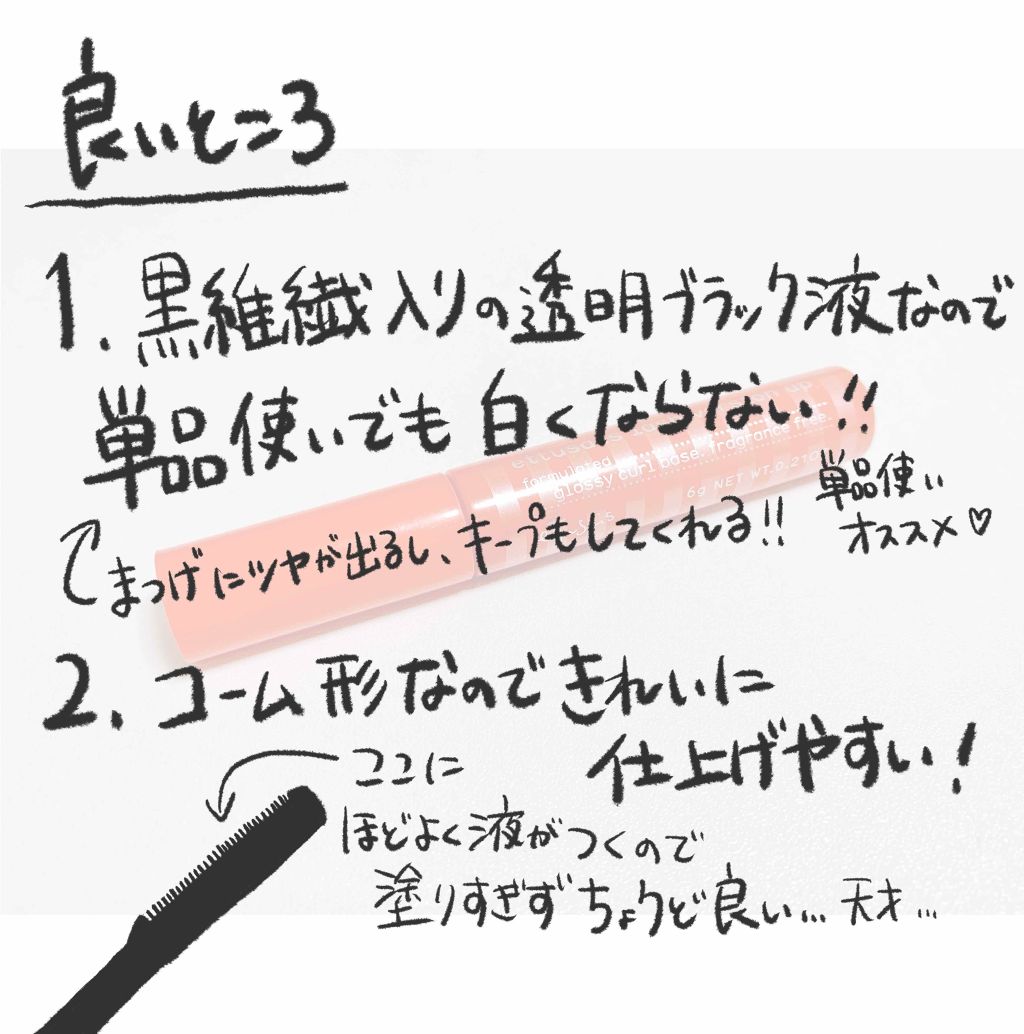 良いところ
1. 黒繊維入りの透明ブラック液なので
単品使いでも白くならない!!
formulated
glossy curl base. fragrance free.
6g NET WT. 0.21
単品使い
オススメ♡
まつげにツヤが出るし、キープもしてくれる!!
2. コーム形なのできれいに
仕上げやすい!
ここに
ほどよく液がつくので
塗りすぎずちょうど良い... 天才...